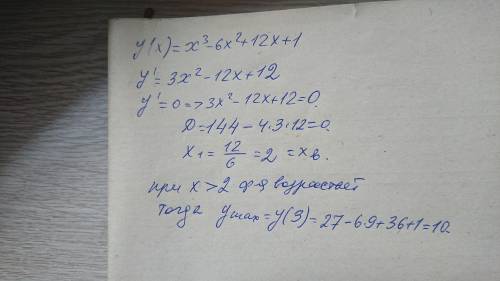 y(x)=x³-6x²+12x+1
y'=3x²-12x+12
y'=0=>3x²-12x+12=0.
D=144-4·3·12=0.
x₁=12/6=2=xв.
при x>2 ф-я возрастает
тогда yмах=y(3)=27-6·9+36+1=10.